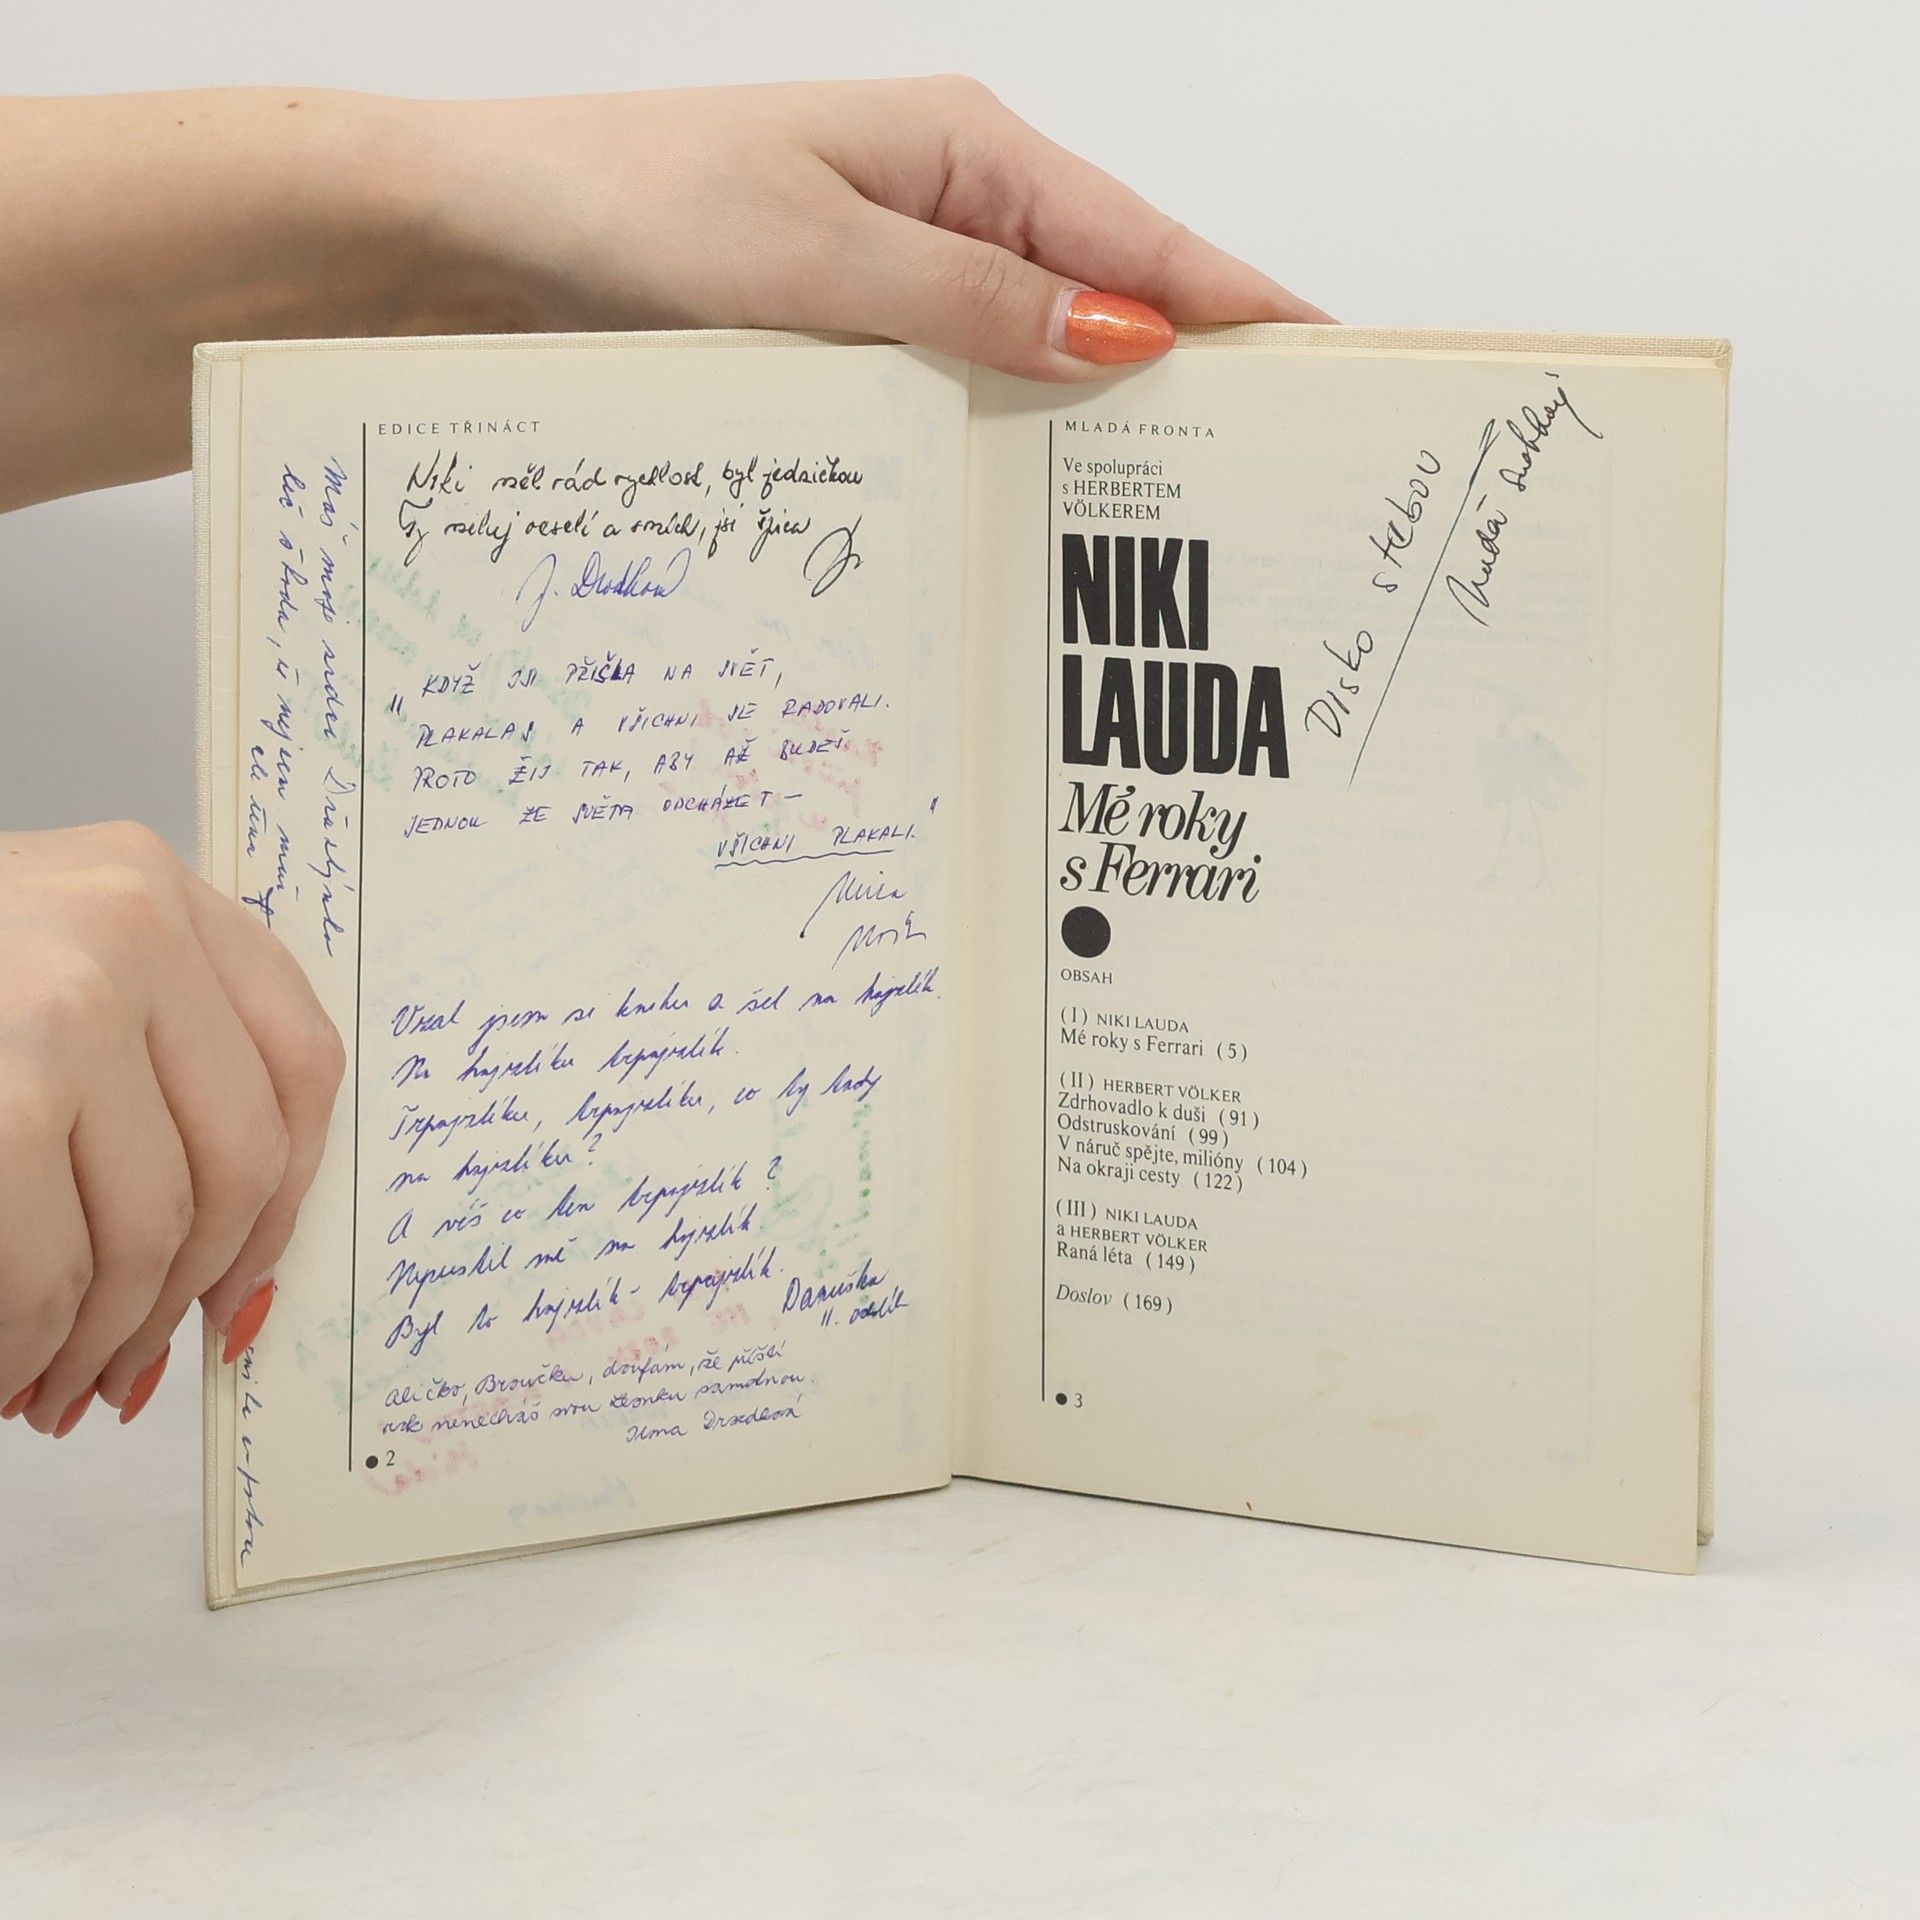 EDICE TŘINÁCT
Niki měl rád rychlost, byl jedničkou
Ty miluj veselí a smích, jsi špica
KDYŽ JSI PŘIŠLA NA SVĚT,
" PLAKALAS A VŠICHNI SE RADOVALI.
PROTO ŽIJ TAK, ABY AŽ BUDEŠ
JEDNOU ZE SVĚTA ODCHÁZET –
VŠICHNI PLAKALI. "
Vzal jsem si knihu a šel na hajzlík.
Na hajzlíku trpajzlík.
Trpajzlíku, trpajzlíku, co ty tady
na hajzlíku?
A víš co ten trpajzlík?
Nepustil mě na hajzlík.
Byl to hajzlík - trpajzlík.
Danuška
II. oddík
Aličko, Broučku, doufám, že příští
rok nenecháš svou Ilonku samotnou.
Ilona
Máš moje srdce
leč škoda, že nejsem muž
ale žena
2
MLADÁ FRONTA
Ve spolupráci
s HERBERTEM
VÖLKEREM
NIKI
LAUDA
Mé roky
s Ferrari
OBSAH
(I) NIKI LAUDA
Mé roky s Ferrari (5)
(II) HERBERT VÖLKER
Zdrhovadlo k duši (91)
Odstruskování (99)
V náruč spějte, milióny (104)
Na okraji cesty (122)
(III) NIKI LAUDA
a HERBERT VÖLKER
Raná léta (149)
Doslov (169)
3
Disko s tebou